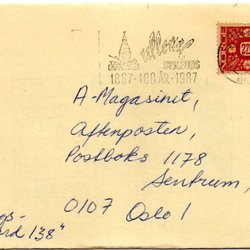 ullevål
SYKEHUS
1887-100 ÅR-1987
A-Magasinet,
Aftenposten,
Postboks 1178
Sentrum,
0107 Oslo 1
ord 138"